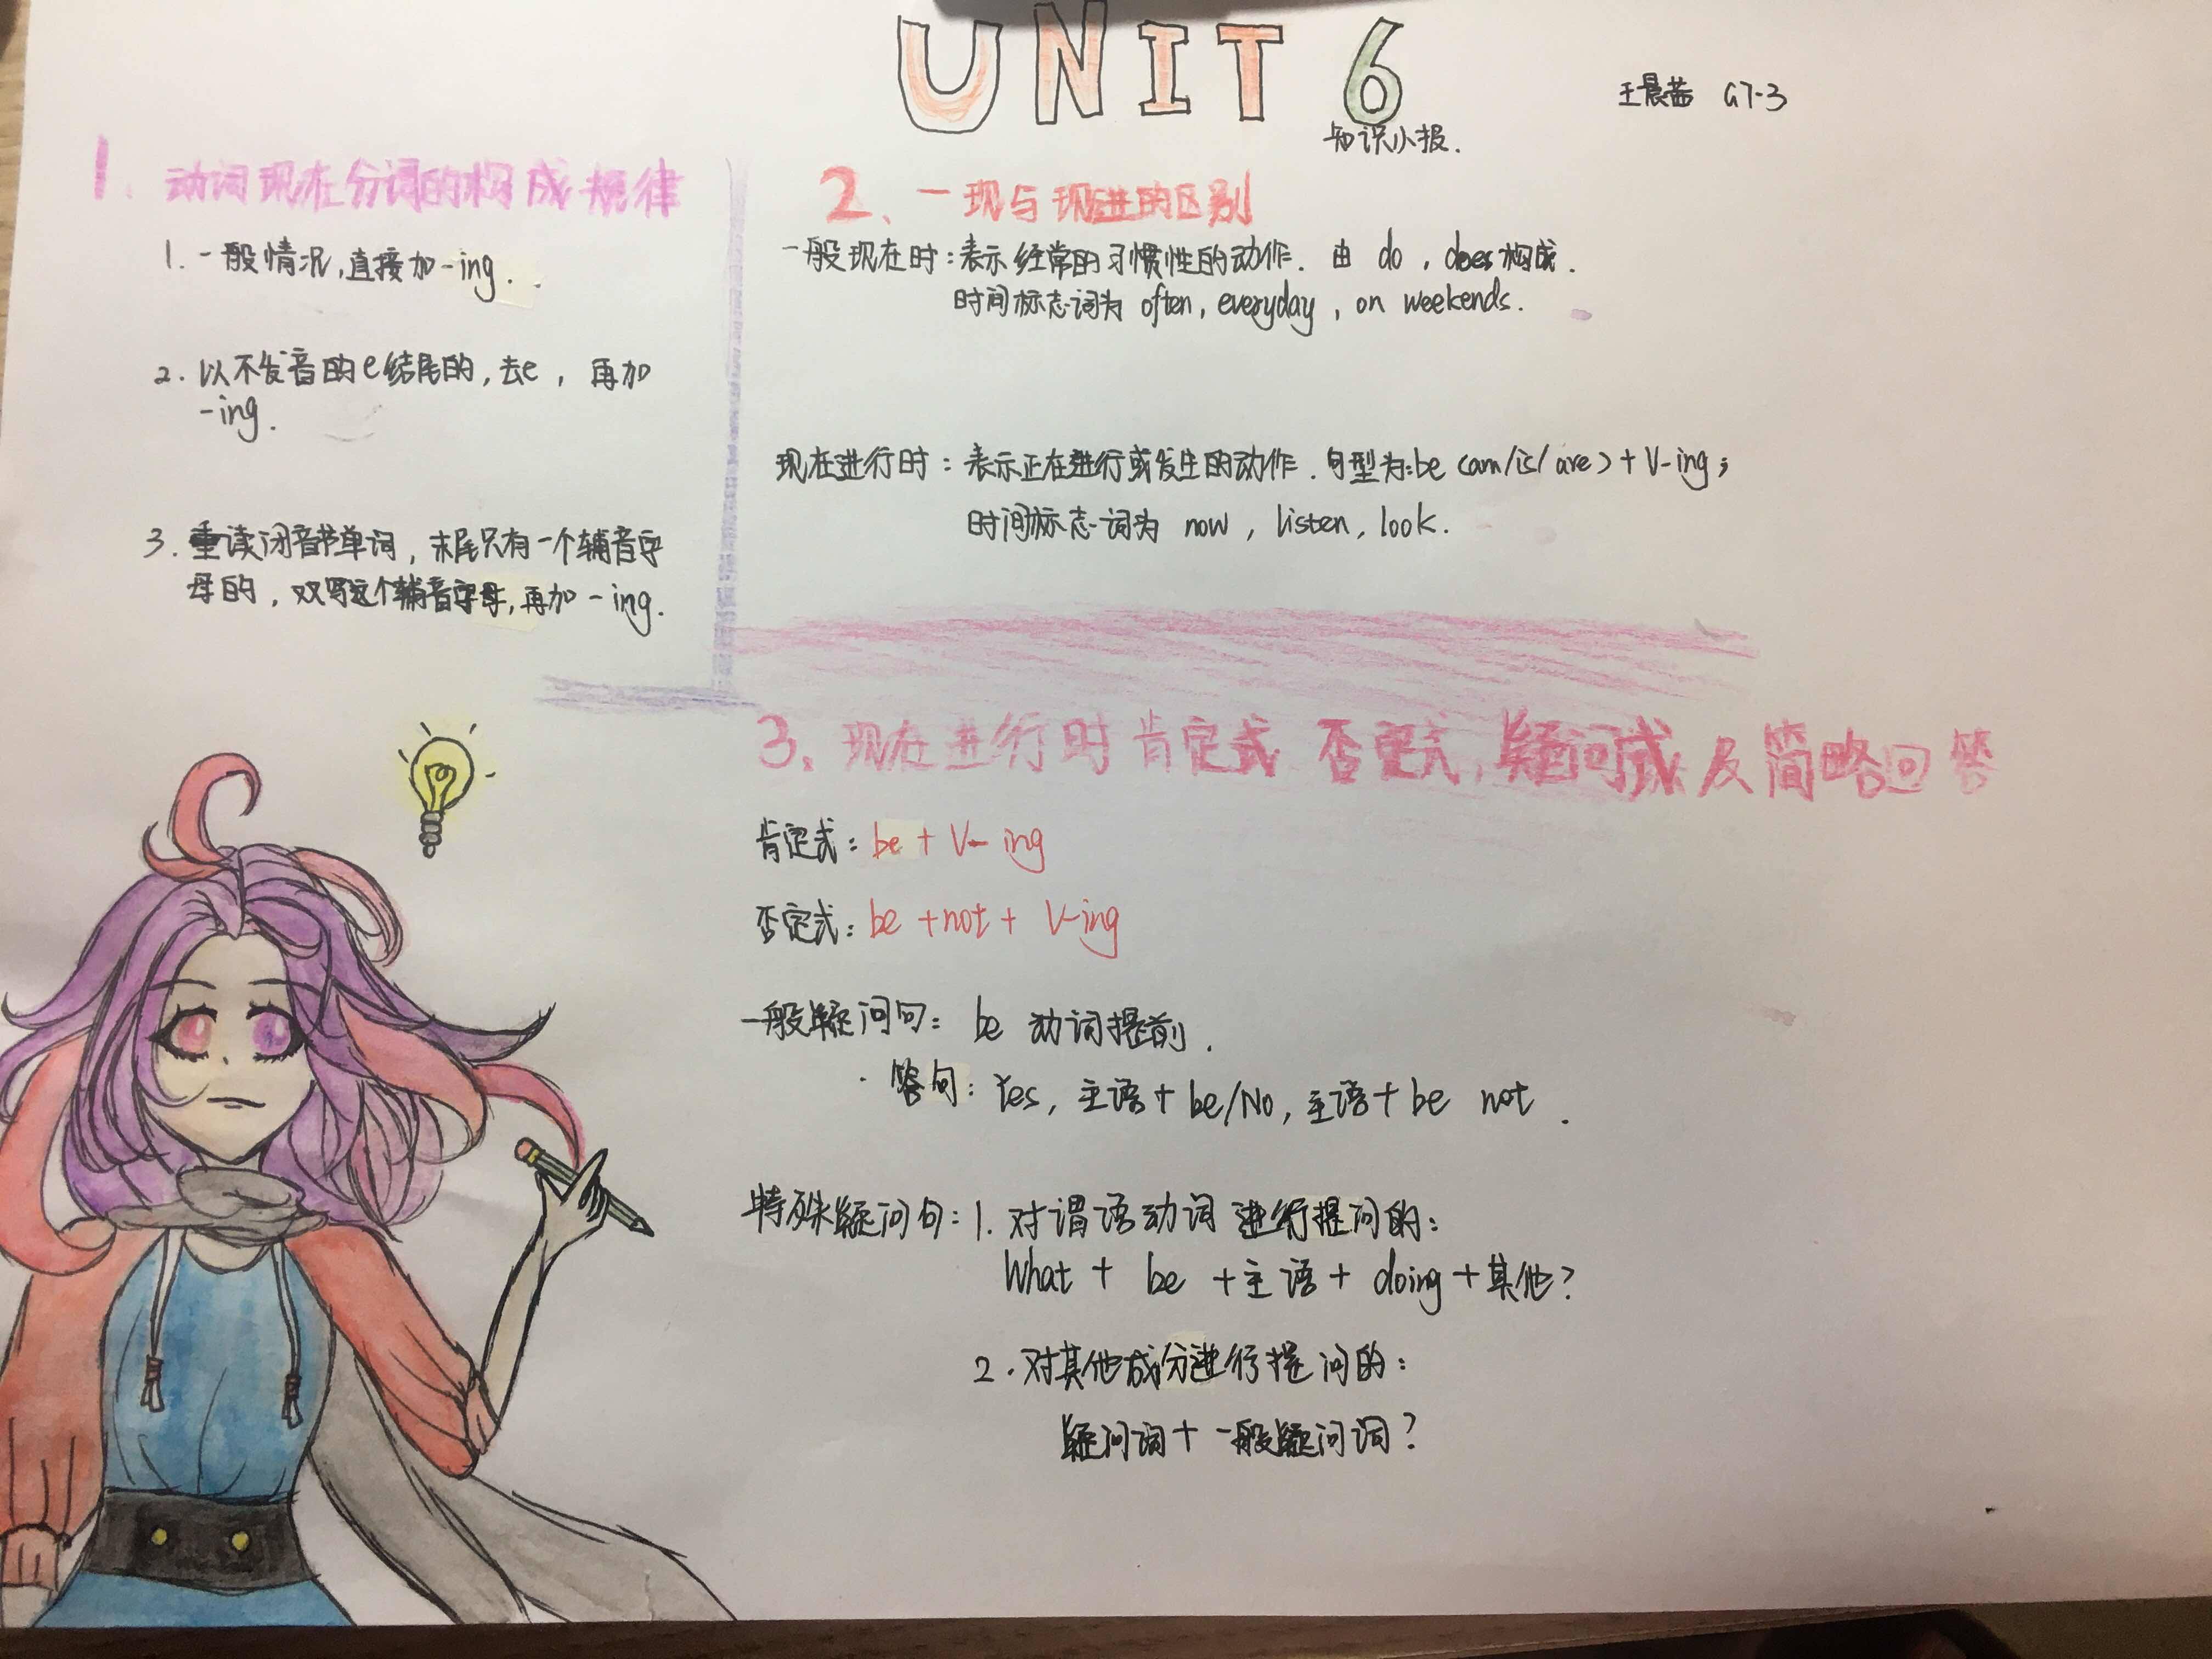 UNIT 6
知识小报.
王晨茜 G7-3
1、动词现在分词的构成规律
1. 一般情况,直接加-ing.
2. 以不发音的e结尾的,去e, 再加
-ing.
3. 重读闭音节单词, 末尾只有一个辅音字
母的, 双写这个辅音字母,再加-ing.
2、一现与现进的区别
一般现在时:表示经常的习惯性的动作. 由 do , does构成.
时间标志词为 often, everyday , on weekends.
现在进行时:表示正在进行或发生的动作.句型为:be (am/is/are)+V-ing;
时间标志词为 now , listen, look.
3、现在进行时肯定式 否定式,疑问式及简略回答
肯定式: be + V- ing
否定式: be +not + V-ing
一般疑问句: be 动词提前.
答句: Yes, 主语+be/No, 主语+be not .
特殊疑问句:1. 对谓语动词进行提问的:
What + be +主语+ doing+其他?
2.对其他成分进行提问的:
疑问词+一般疑问词?